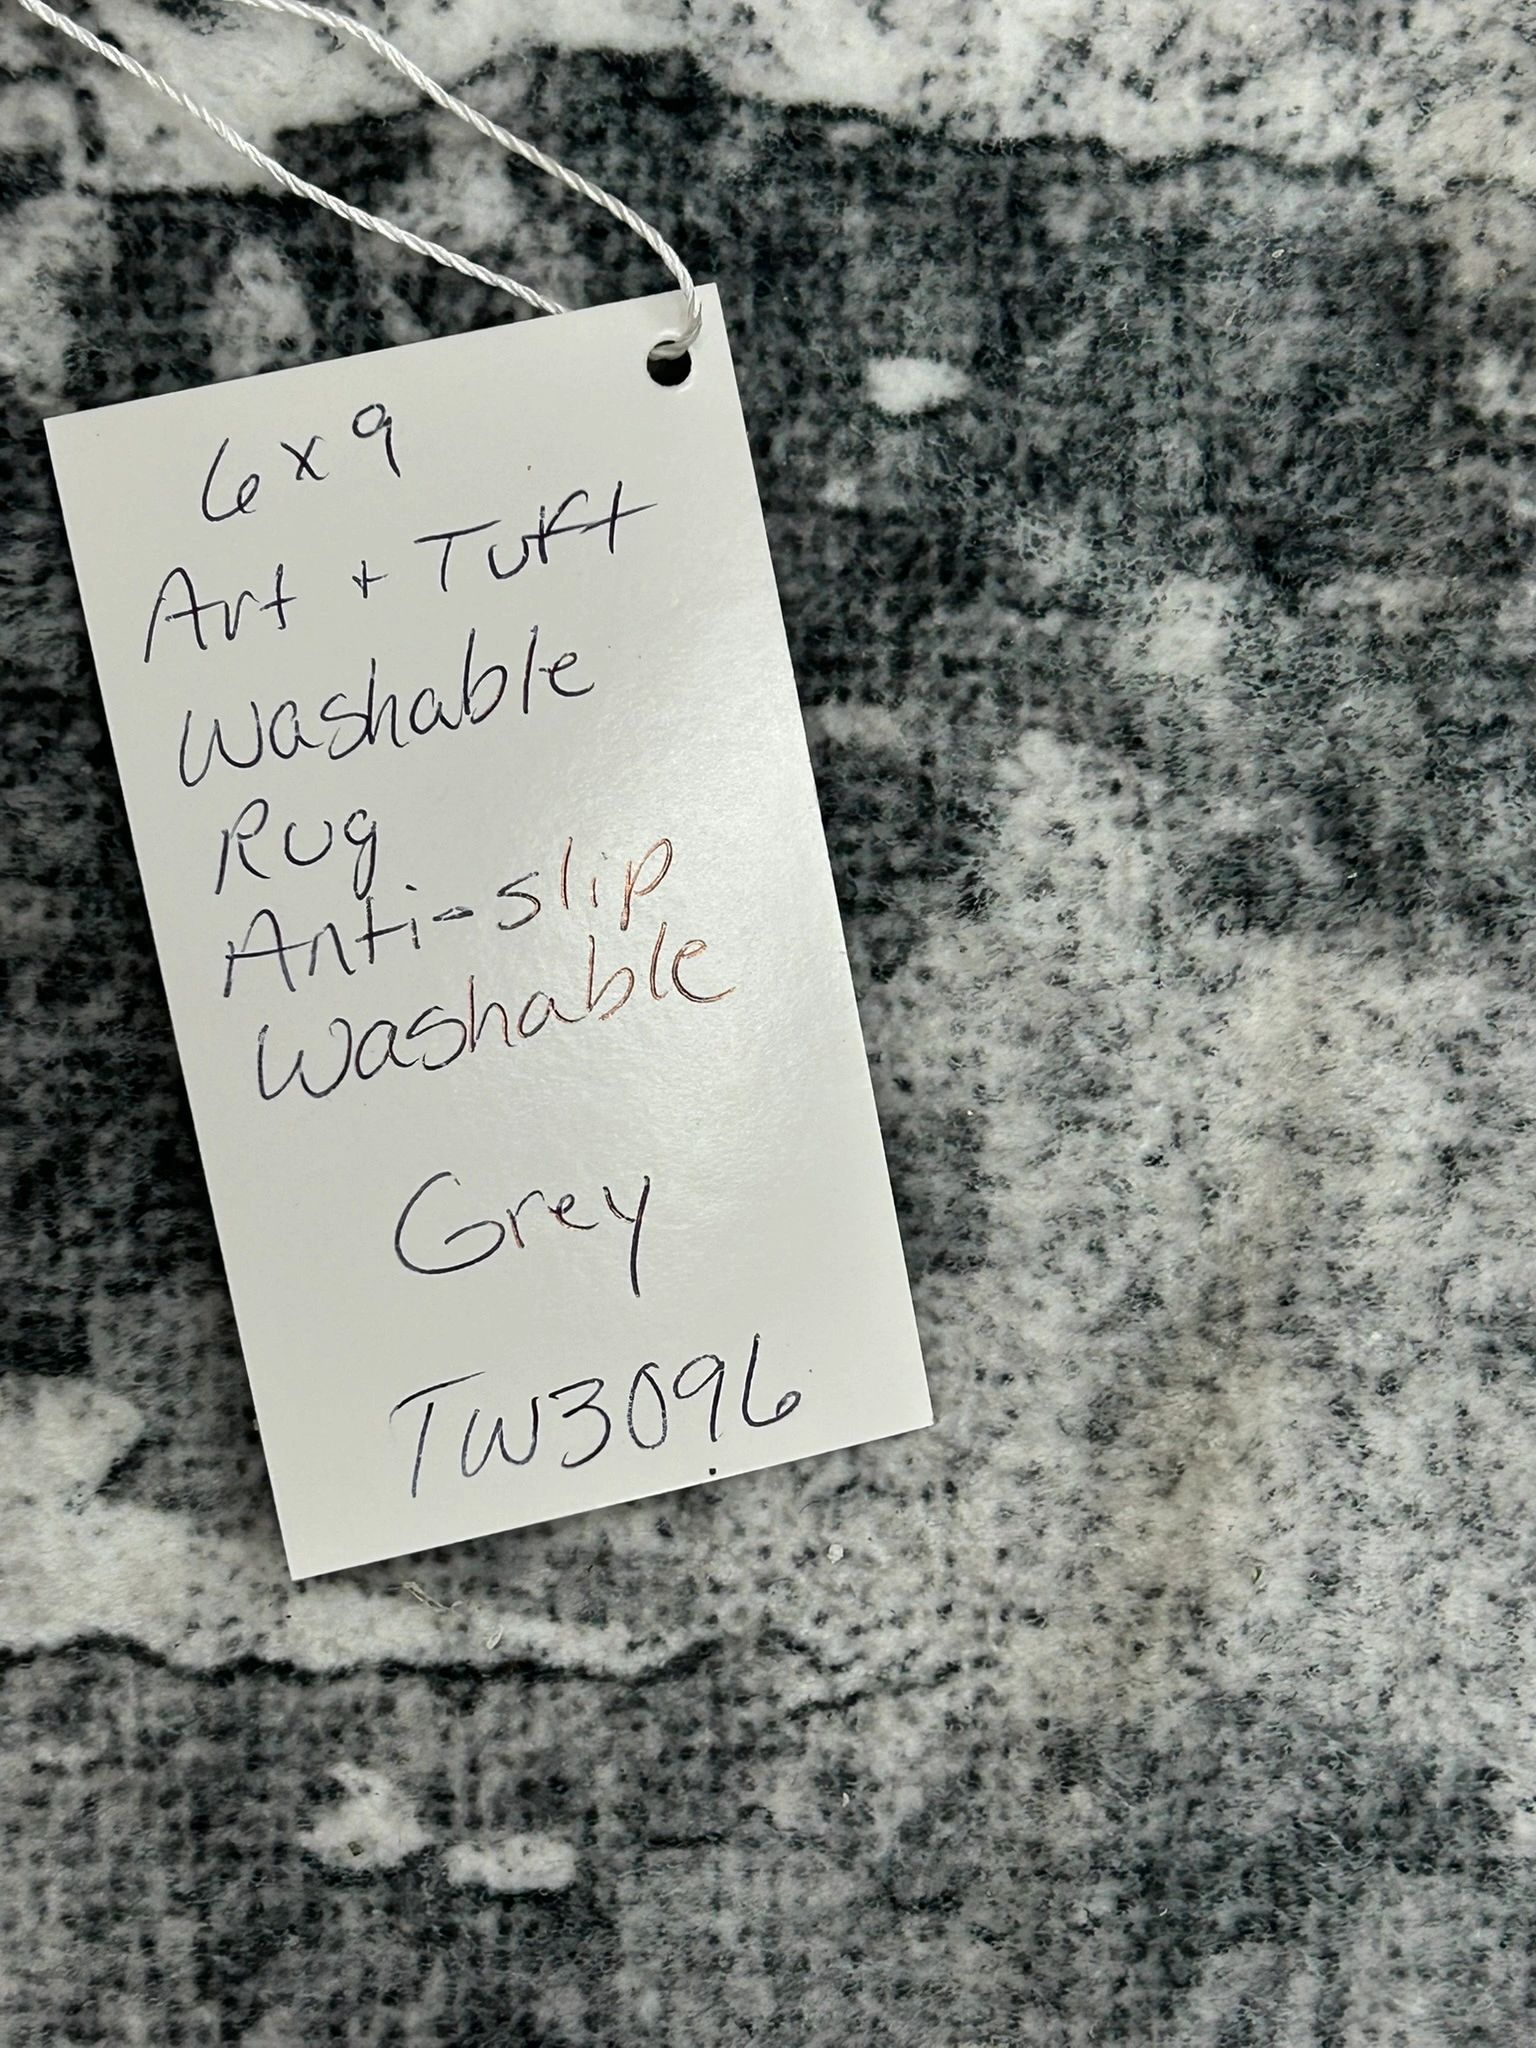 6x9
Art + Tuft
Washable
Rug
Anti-slip
Washable
Grey
TW3096